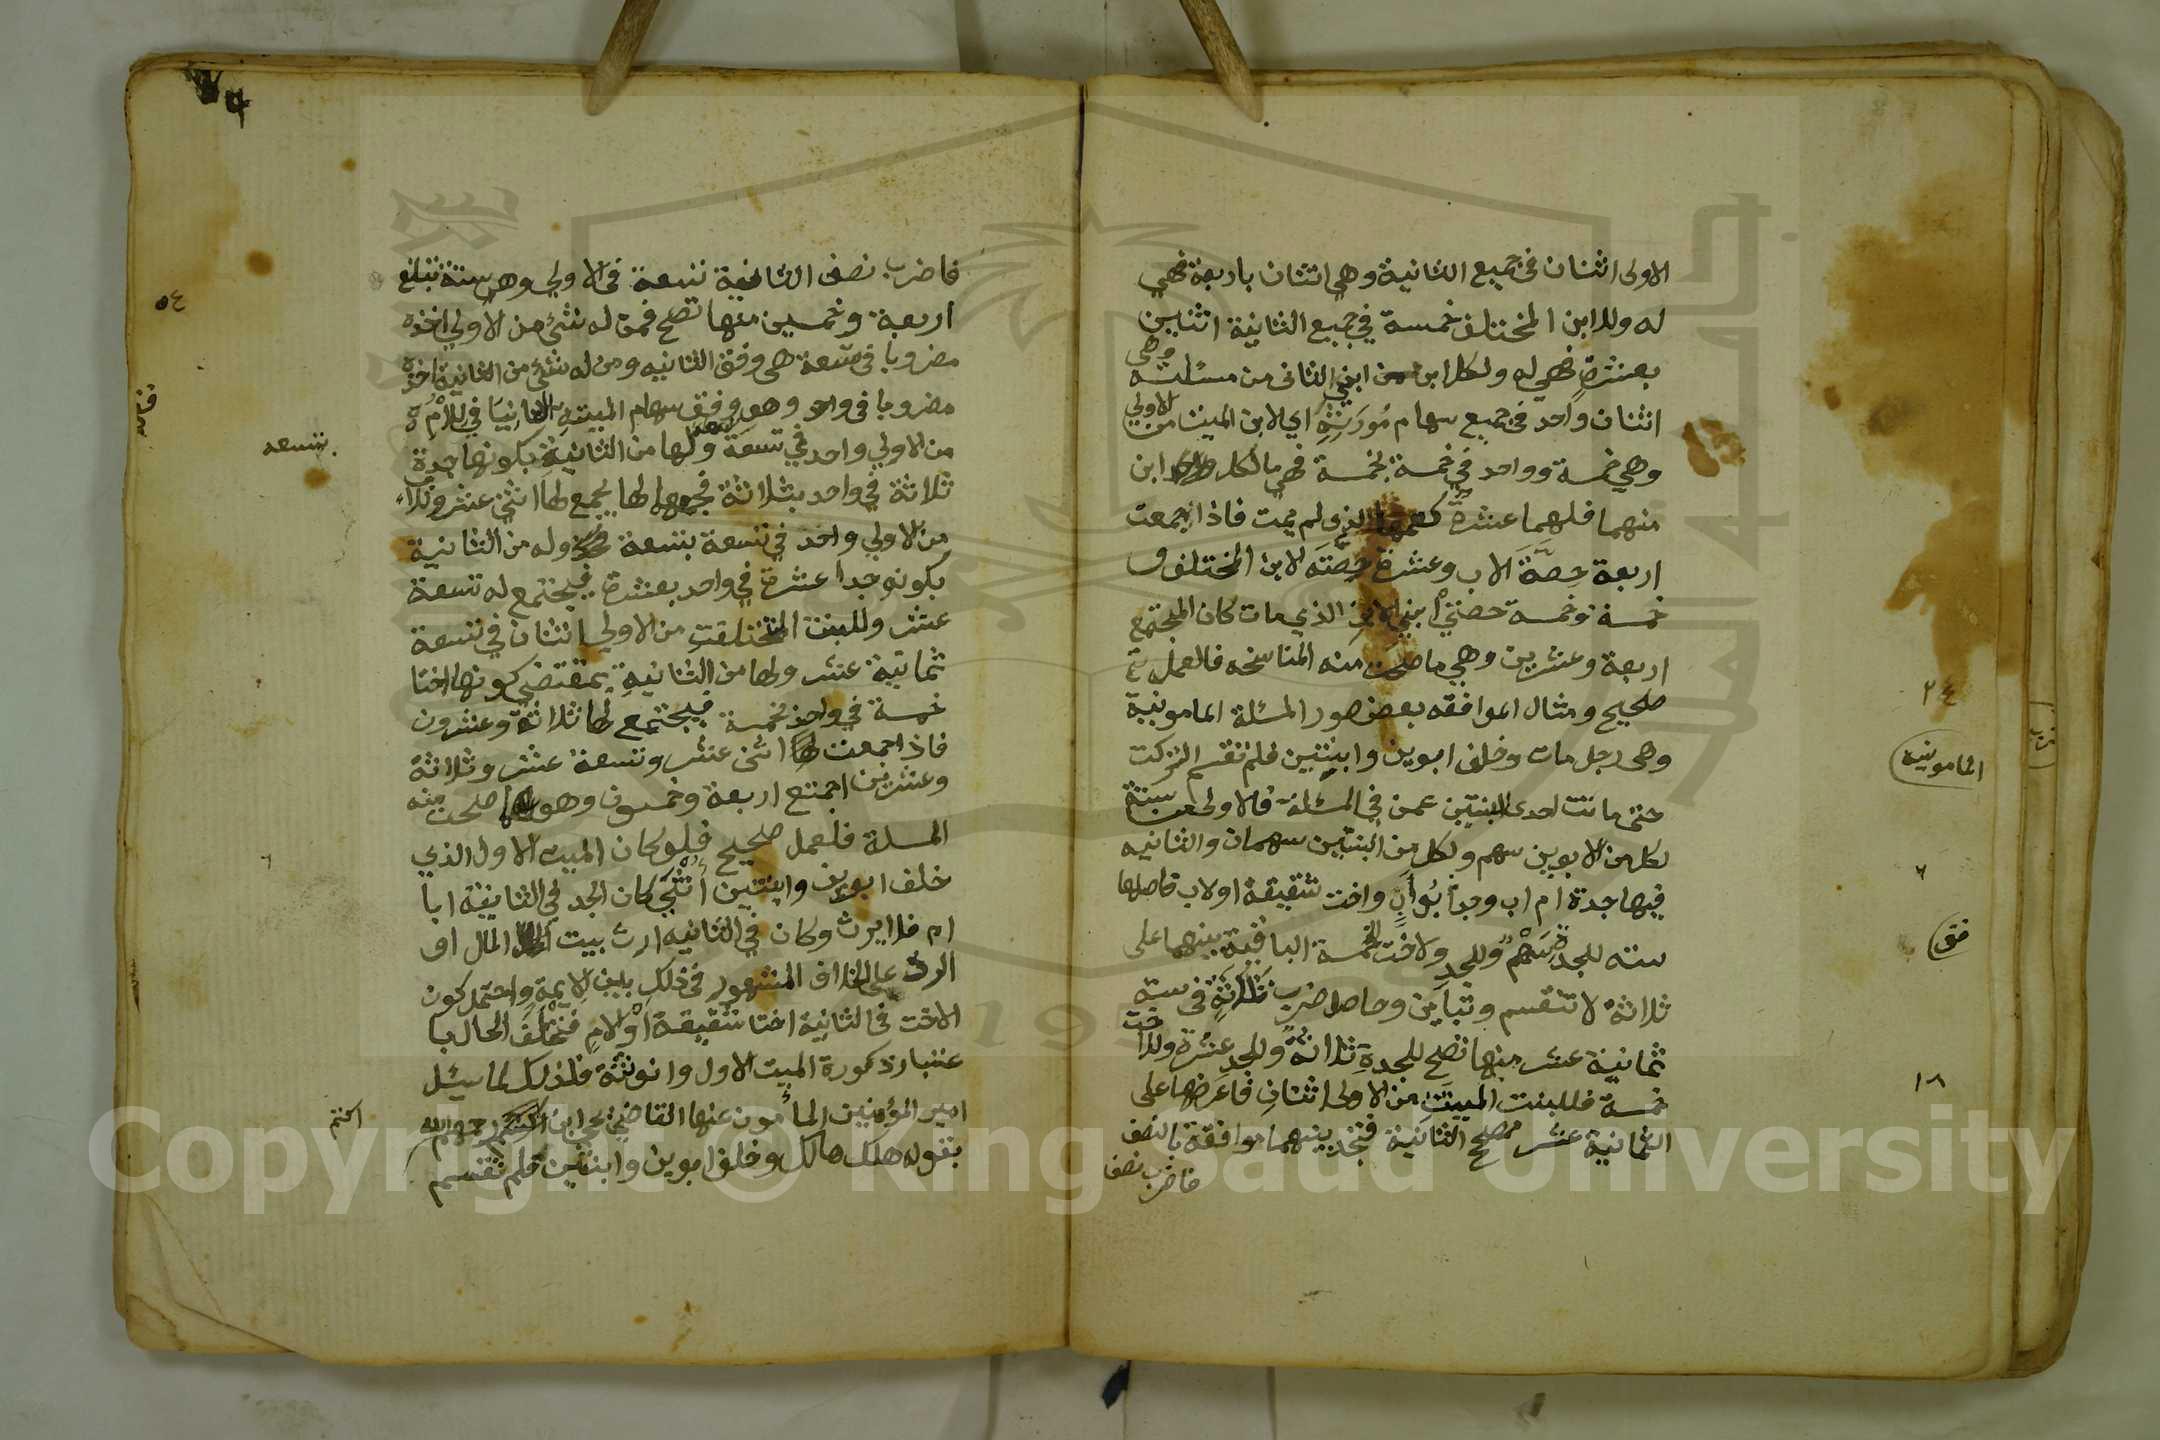 الاولى اثنان في جميع الثانية وهي اثنان باربعة فهي
له وللابن المختلف خمسة في جميع الثانية اثنين
بعشرة فهي له ولكل ابن من ابني الثاني من مسئلته وهي
اثنان واحد في جميع سهام مورثه اي لابن الميت من الاولي
وهي خمسة وواحد في خمسة بخمسة فهي مالكل ابن
منهما فلهما عشرة كعمهما الذي لم يمت فاذا جمعت
اربعة حصة الاب وعشرة حصته لابن المختلف و
خمسة وخمسة حصتي ابني الابن الذي مات كان المجتمع
اربعة وعشرين وهي ما صحت منه المناسخه فالعمل
صحيح ومثال الموافقه بعض صور المسئلة المامونية
وهي رجل مات وخلف ابوين وابنتين فلم تقسم التركت
حتى ماتت احدى البنتين عمن في المسئلة فالاولى من ستة
لكل من الابوين سهم ولكل من البنتين سهمان والثانيه
فيها جدة ام اب وجد ابو اب واخت شقيقة اولاب فاصلها
سته للجدة سهم وللجد ولاخت الخمسة الباقية بينهما على
ثلاثة لا تنقسم وتباين وحاصل ضرب ثلاثة في سته
ثمانية عشر منها تصح للجدة ثلاثة وللجد عشرة وللاخت
خمسة فللبنت الميتت من الاولى اثنان فاعرضها على
الثمانية عشر مصح الثانية فتجد بينهما موافقة بالنصف
فاضرب نصف
٢٤
المامونيه
٦
قف
١٨
فاضرب نصف الثانية تسعة في الاولي وهي ستة تبلغ
اربعة وخمسين منها تصح فمن له شئ من الاولي اخذه
مضروبا في تسعة هي وفق الثانيه ومن له شئ من الثانية اخذه
مضروبا في واحد وهو وفق سهام الميته الثانيا في للام
من الاولي واحد في تسعة ولها من الثانية بكونها جدة
ثلاثة في واحد بثلاثة فجمعها لها يجمع لها اثني عشر وللاب
من الاولي واحد في تسعة بتسعة وله من الثانية
بكونه جدا عشرة في واحد بعشرة فيجتمع له تسعة
عشر وللبنت المتخلفت من الاولي اثنان في تسعة
ثمانية عشر ولها من الثانية بمقتضي كونها اختا
خمسة في واحد بخمسة فيجتمع لها ثلاثة وعشرون
فاذا جمعت اثنى عشر وتسعة عشر وثلاثة
وعشرين اجتمع اربعة وخمسون وهو ما صحت منه
المسلة فلعمل صحيح فلو كان الميت الاول الذي
خلف ابوين وابنتين أنثي كان الجد في الثانية ابا
ام فلا ايرث وكان في الثانيه ارث بيت المال او
الرد على الخلاف المشهور في ذلك بين الايمة واحتمل كون
الاخت في الثانية اختا شقيقة او لام فتختلف الحال با
عتبار ذكورة الميت الاول وانوثته فلذلك لما سئل
امير المؤمنين المأمون عنها القاضي يحي ابن اكثم رحمهم الله
بقوله هلك هالك وخلف ابوين وابنتين فلم تقسم
٥٤
تسعه
اكثم
Copyright © King Saud University